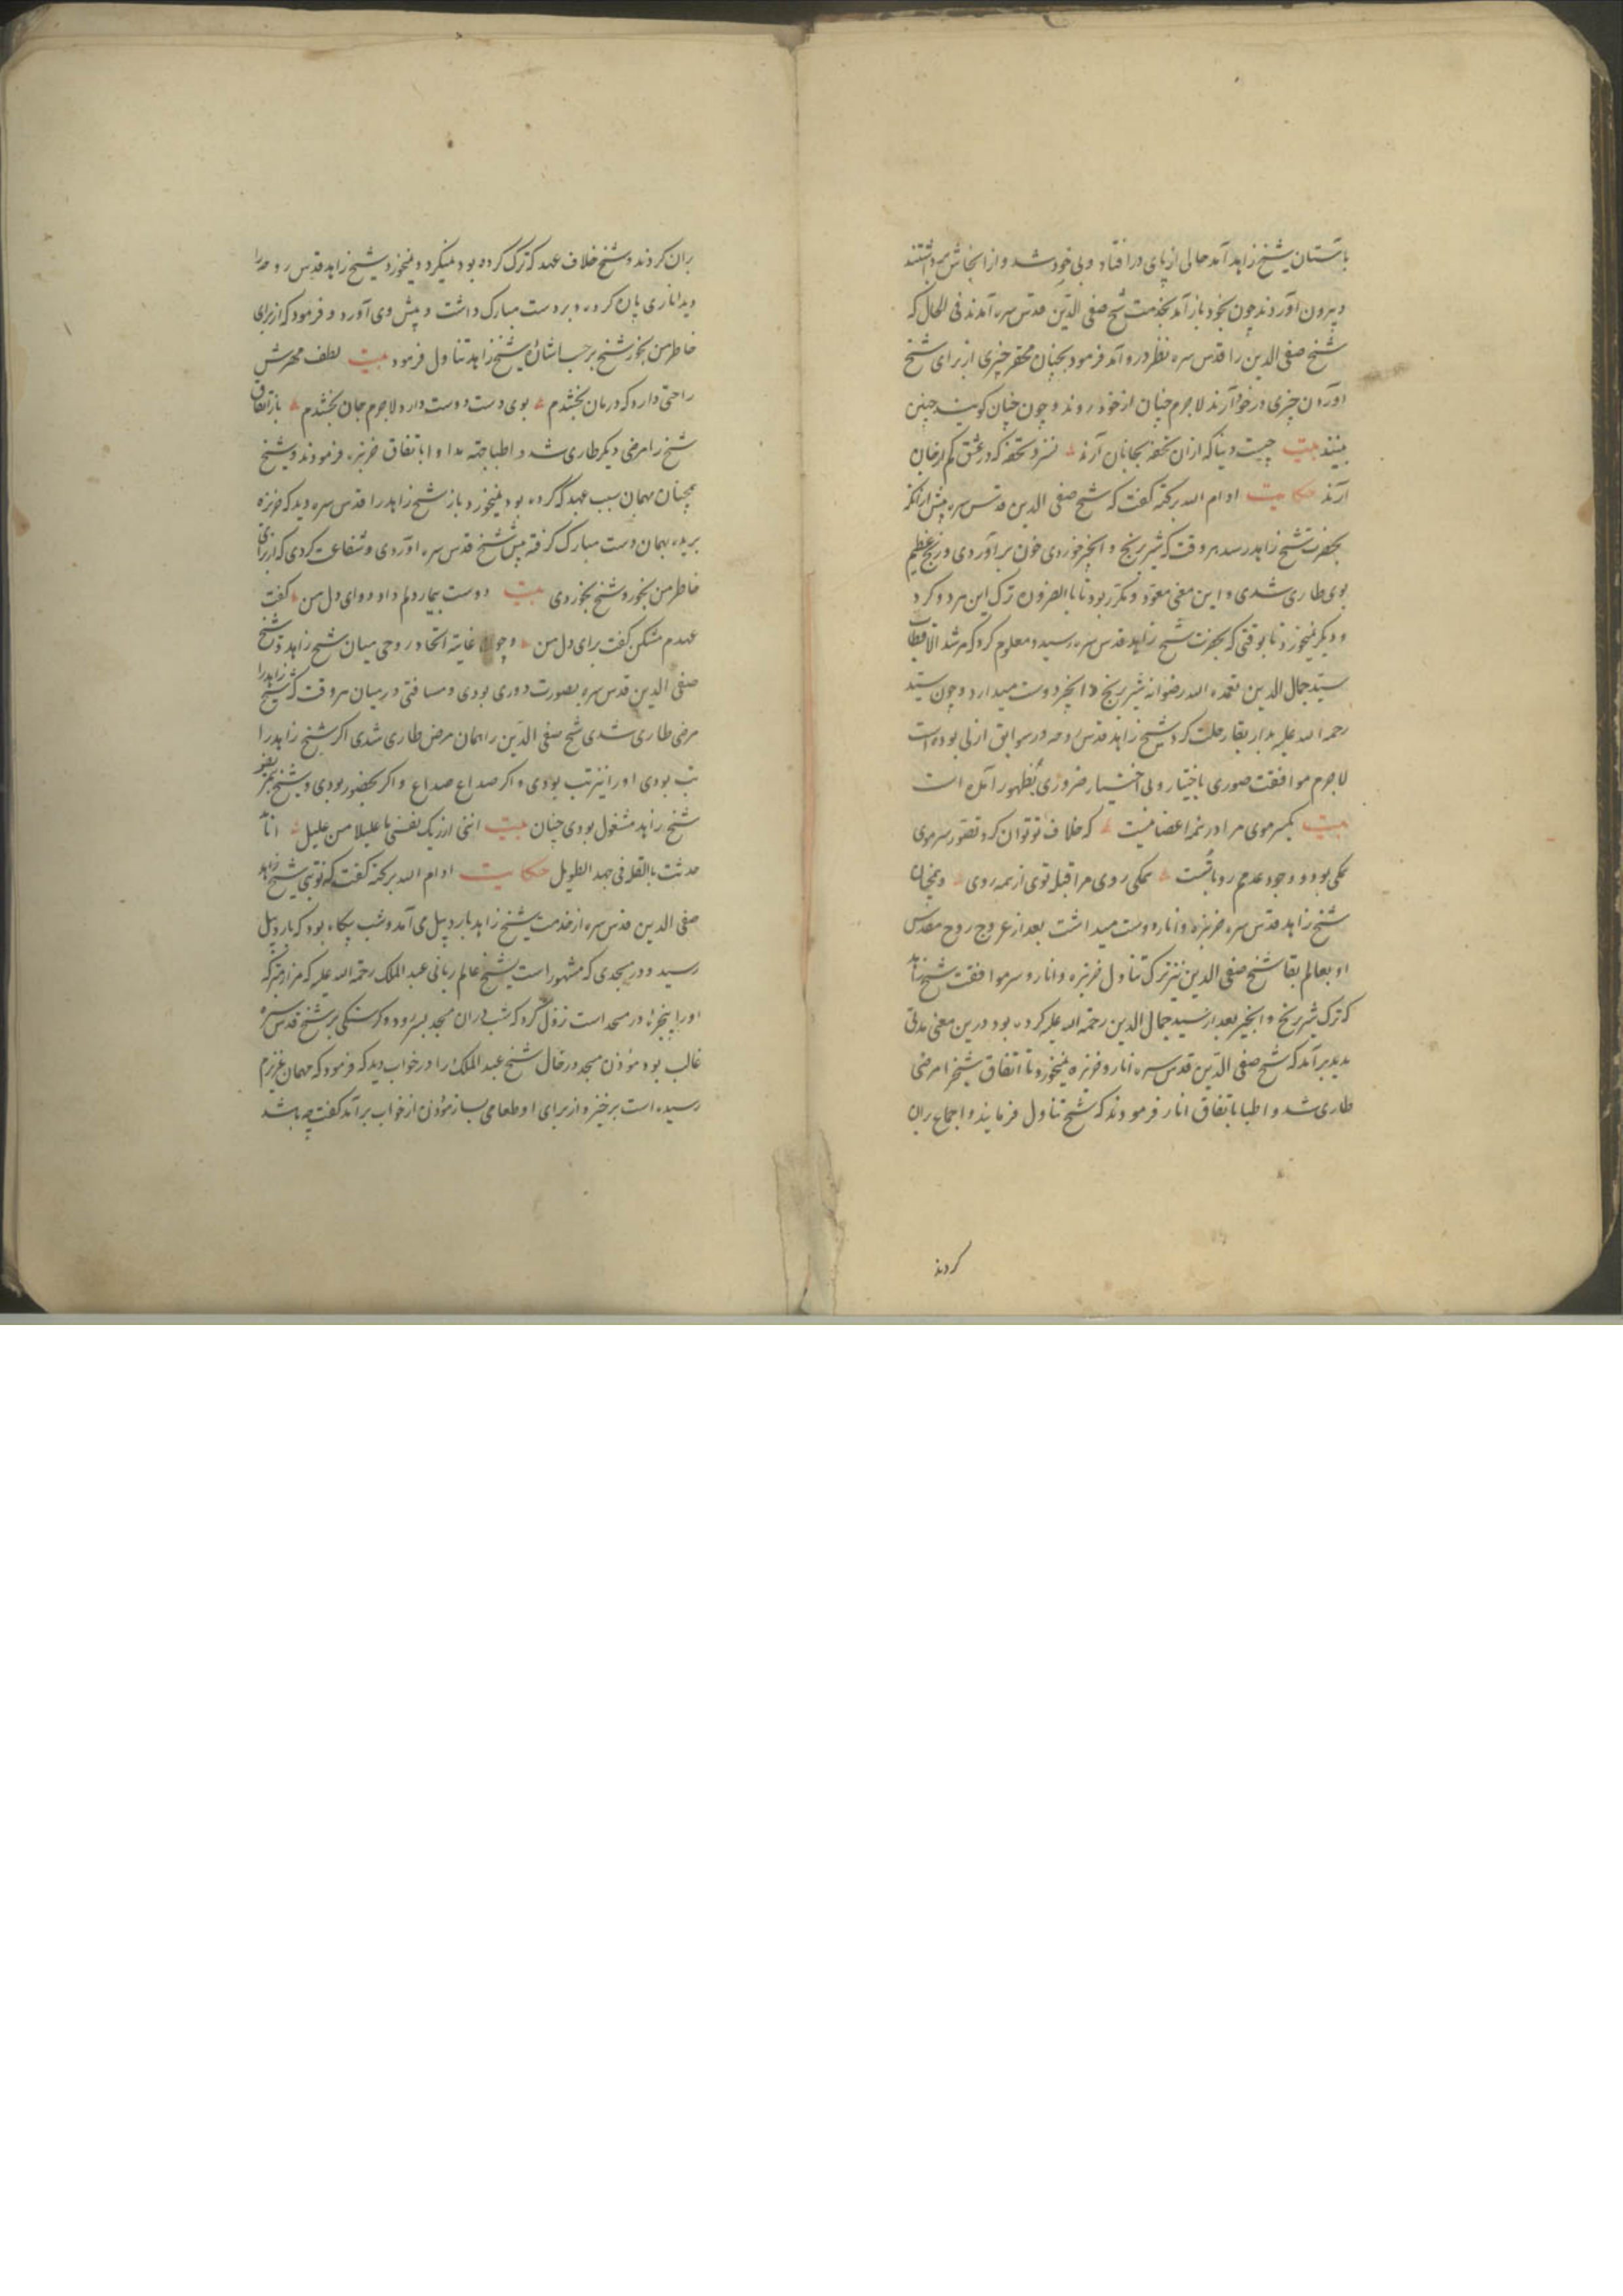 باستان شیخ زاهد آمد حالی از پای در افتاد و بی خود شد و از انجاش برداشتند
و بیرون آوردند چون بخود باز آمد بخدمت شیخ صفی الدین قدس سره آمدند فی الحال که
شیخ صفی الدین را قدس سره نظر در و آمد فرمود بچنان محقر چیزی از برای شیخ
آوردن چیزی در خود آرند لاجرم چنان از خود روند و چون چنان کویند چنین
بینند بیت چیست دنیا که ازان تحفه بجانان آرند نسزد تحفه که در عشق کم از جان
آرند حکایت ادام الله برکته کفت که شیخ صفی الدین قدس سره پیش ازانکه
بحضرت شیخ زاهد رسد هر وقت که شیر برنج و انجیر خوردی خون بر آوردی و رنج عظیم
بوی طاری شدی و این معنی معتود و مکرر بود تا بالضروره ترک این هر دو کرد
و دیکر نمیخورد تا بوقتی که بحضرت شیخ زاهد قدس سره رسید و معلوم کرد که مرشد الاقطاب
سید جمال الدین تغمده الله رضوانه شیر برنج و انجیر دوست میدارد و چون سید
رحمه الله علیه بدار بقا رحلت کرد شیخ زاهد قدس روحه در سوابق ازلی بوده است
لاجرم موافقت صوری باختیار و بی اختیار ضروری بظهور آمده است
بیت یکسر موی مرا در همه اعضا نیست که خلاف تو توان کرد تصور سر موی
همکی بود و وجود عدمم رو با تست همکی روی مرا قبله توی از همه روی و همچنان
شیخ زاهد قدس سره خربزه و انار دوست میداشت بعد از عروج روح مقدس
او بعالم بقا شیخ صفی الدین نیز ترک تناول خربزه و انار و سر موافقت شیخ زاهد
که ترک شیر برنج و انجیر بعد از سید جمال الدین رحمة الله علیه کرده بود درین معنی مدتی
مدید بر آمد که شیخ صفی الدین قدس سره انار و خربزه نمیخورد تا اتفاق شیخ را مرضی
طاری شد و اطبا باتفاق انار فرمودند که شیخ تناول فرمایند و اجماع بران
کردند
بران کردند و شیخ خلاف عهد که ترک کرده بود نمیکرد و نمیخورد شیخ زاهد قدس روحه را
دید اناری پاره کرده و بر دست مبارک داشت و پیش وی آورد و فرمود که از برای
خاطر من بخور شیخ بر حسب اشارة شیخ زاهد تناول فرمود بیت لطف مهرش
راحتی دارد که درمان بخشدم بوی دست دوست دارد لاجرم جان بخشدم باز اتفاق
شیخ را مرضی دیکر طاری شد و اطبا جهة مداوا باتفاق خربزه فرمودند و شیخ
همچنان بهمان سبب عهد که کرده بود نمیخورد باز شیخ زاهد را قدس سره دید که خربزه
بریده بهمان دست مبارک کرفته پیش شیخ قدس سره آوردی و شفاعت کردی که از برای
خاطر من بخور و شیخ بخوردی بیت دوست بیمار دلم داد دوای دل من کفت
عهدم مشکن کفت برای دل من و چون غایة اتحاد روحی میان شیخ زاهد و شیخ
صفی الدین قدس سره بصورت دوری بودی و مسافتی در میان هر وقت که شیخ زاهد را
مرضی طاری شدی شیخ صفی الدین را همان مرض طاری شدی اکر شیخ زاهد را
تب بودی او را نیز تب بودی و اکر صداع صداع و اکر بحضور بودی و شیخ بغمز
شیخ زاهد مشغول بودی چنان بیت اننی ارزیک بنفسی یا علیلا من علیل
حدثت بالقلة فی جهد الطویل حکایت ادام الله برکته کفت که نوبتی شیخ
صفی الدین قدس سره از خدمت شیخ زاهد باردبیل می آمد و شب بیکاه بود که باردبیل
رسید و در مسجدی که مشهور است بشیخ عالم ربانی عبد الملک رحمة الله علیه که مزار متبرکه
او را پنجره در مسجد است نزول کرد که شب دران مسجد بسر رود و کرسنکی بر شیخ قدس سره
غالب بود مؤذن مسجد در حال شیخ عبد الملک را در خواب دید که فرمود که مهمان عزیزم
رسیده است برخیز و از برای او طعامی بساز مؤذن از خواب بر آمد کفت چه باشد